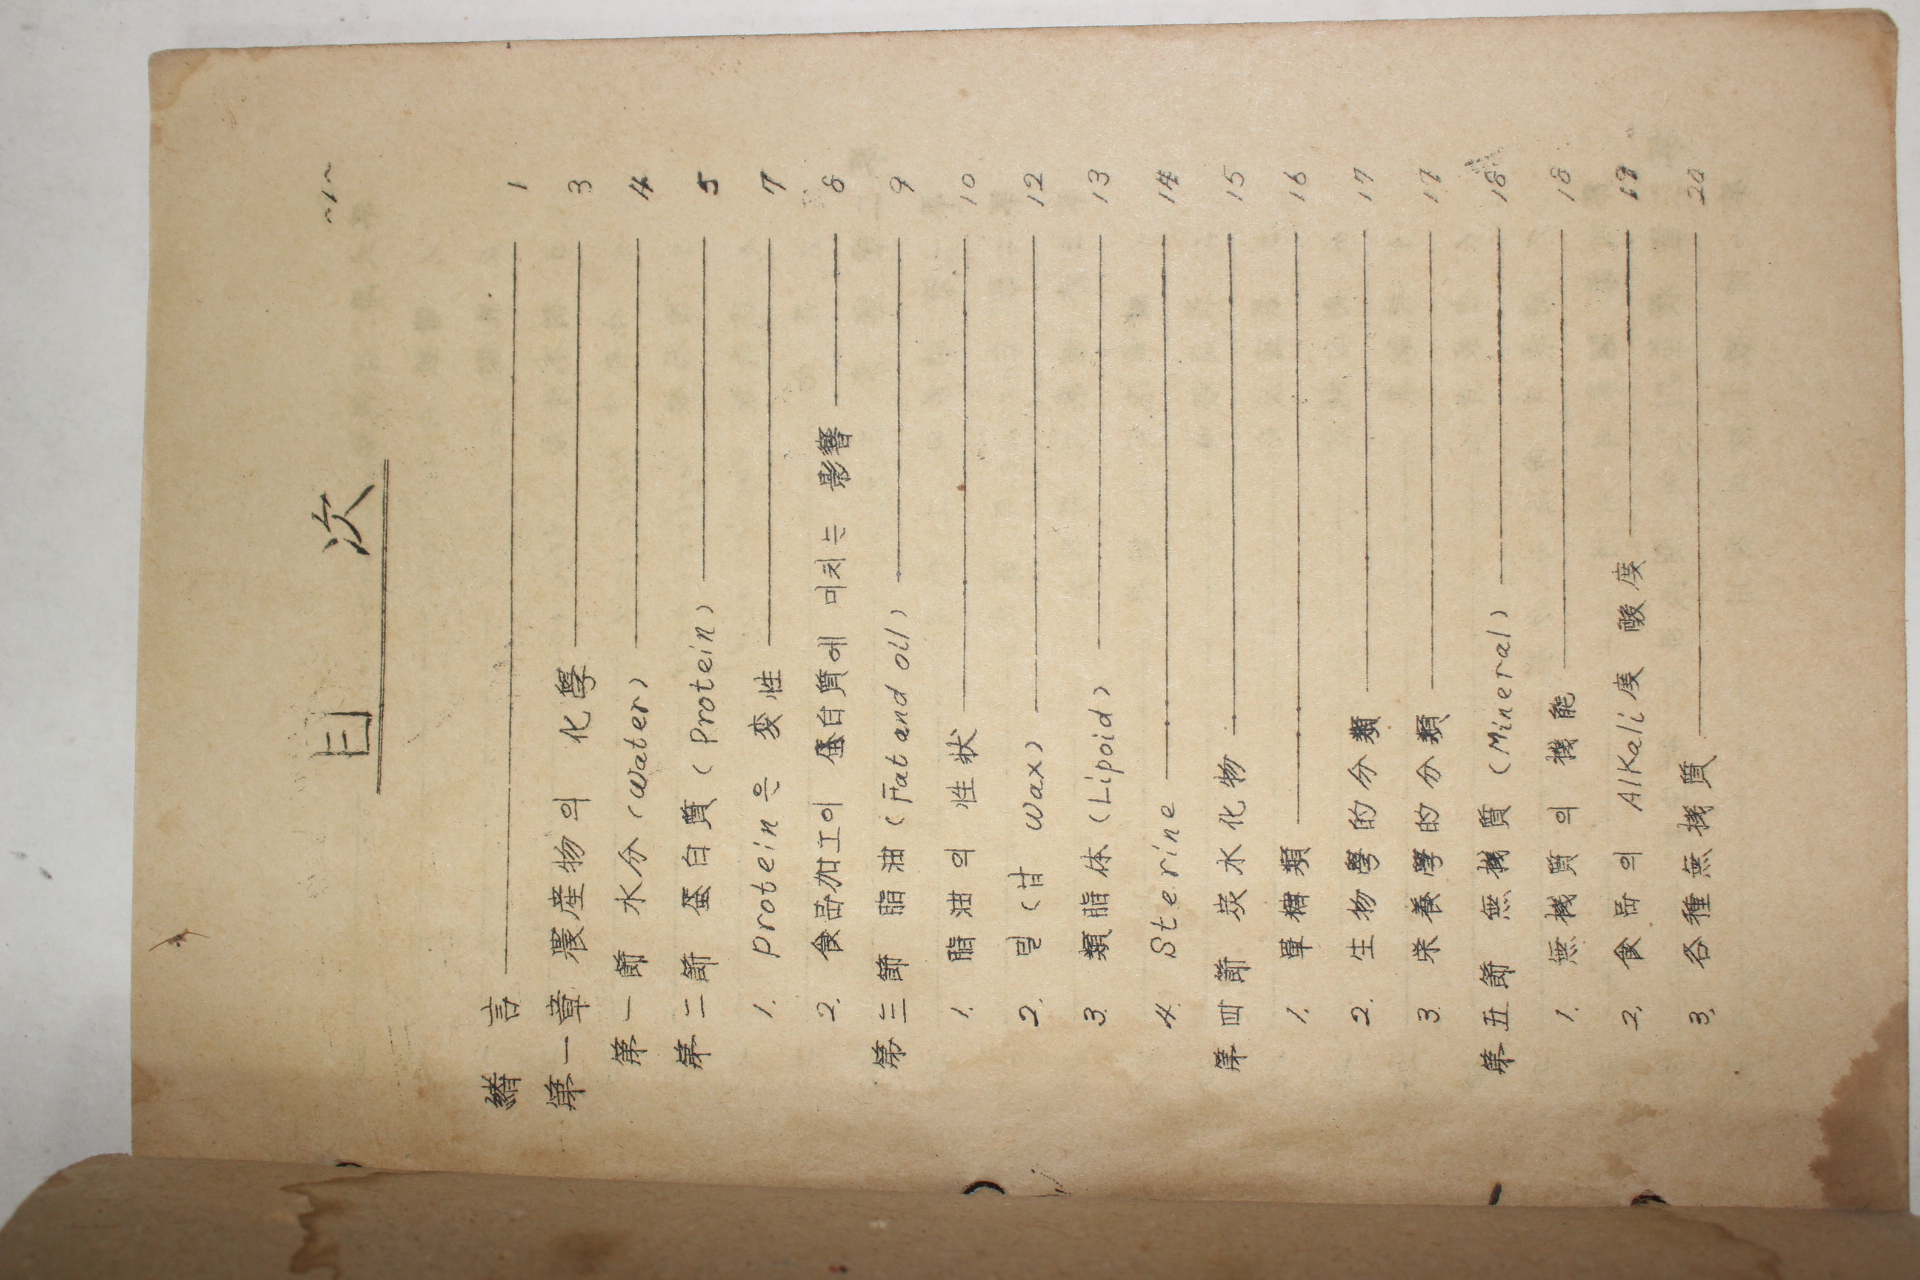 目 次
~1~
緖 言 1
第一章 農産物의 化學 3
第一節 水分 (Water) 4
第二節 蛋白質 (Protein) 5
1. Protein은 変性 7
2. 食品加工이 蛋白質에 미치는 影響 8
第三節 脂油 (Fat and oil) 9
1. 脂油의 性狀 10
2. 밀 (甘 Wax) 12
3. 類脂体 (Lipoid) 13
4. Sterine 14
第四節 炭水化物 15
1. 單糖類 16
2. 生物學的分類 17
3. 栄養學的分類 17
第五節 無機質 (Mineral) 18
1. 無機質의 機能 18
2. 食品의 Alkali度 酸度 19
3. 各種無機質 20